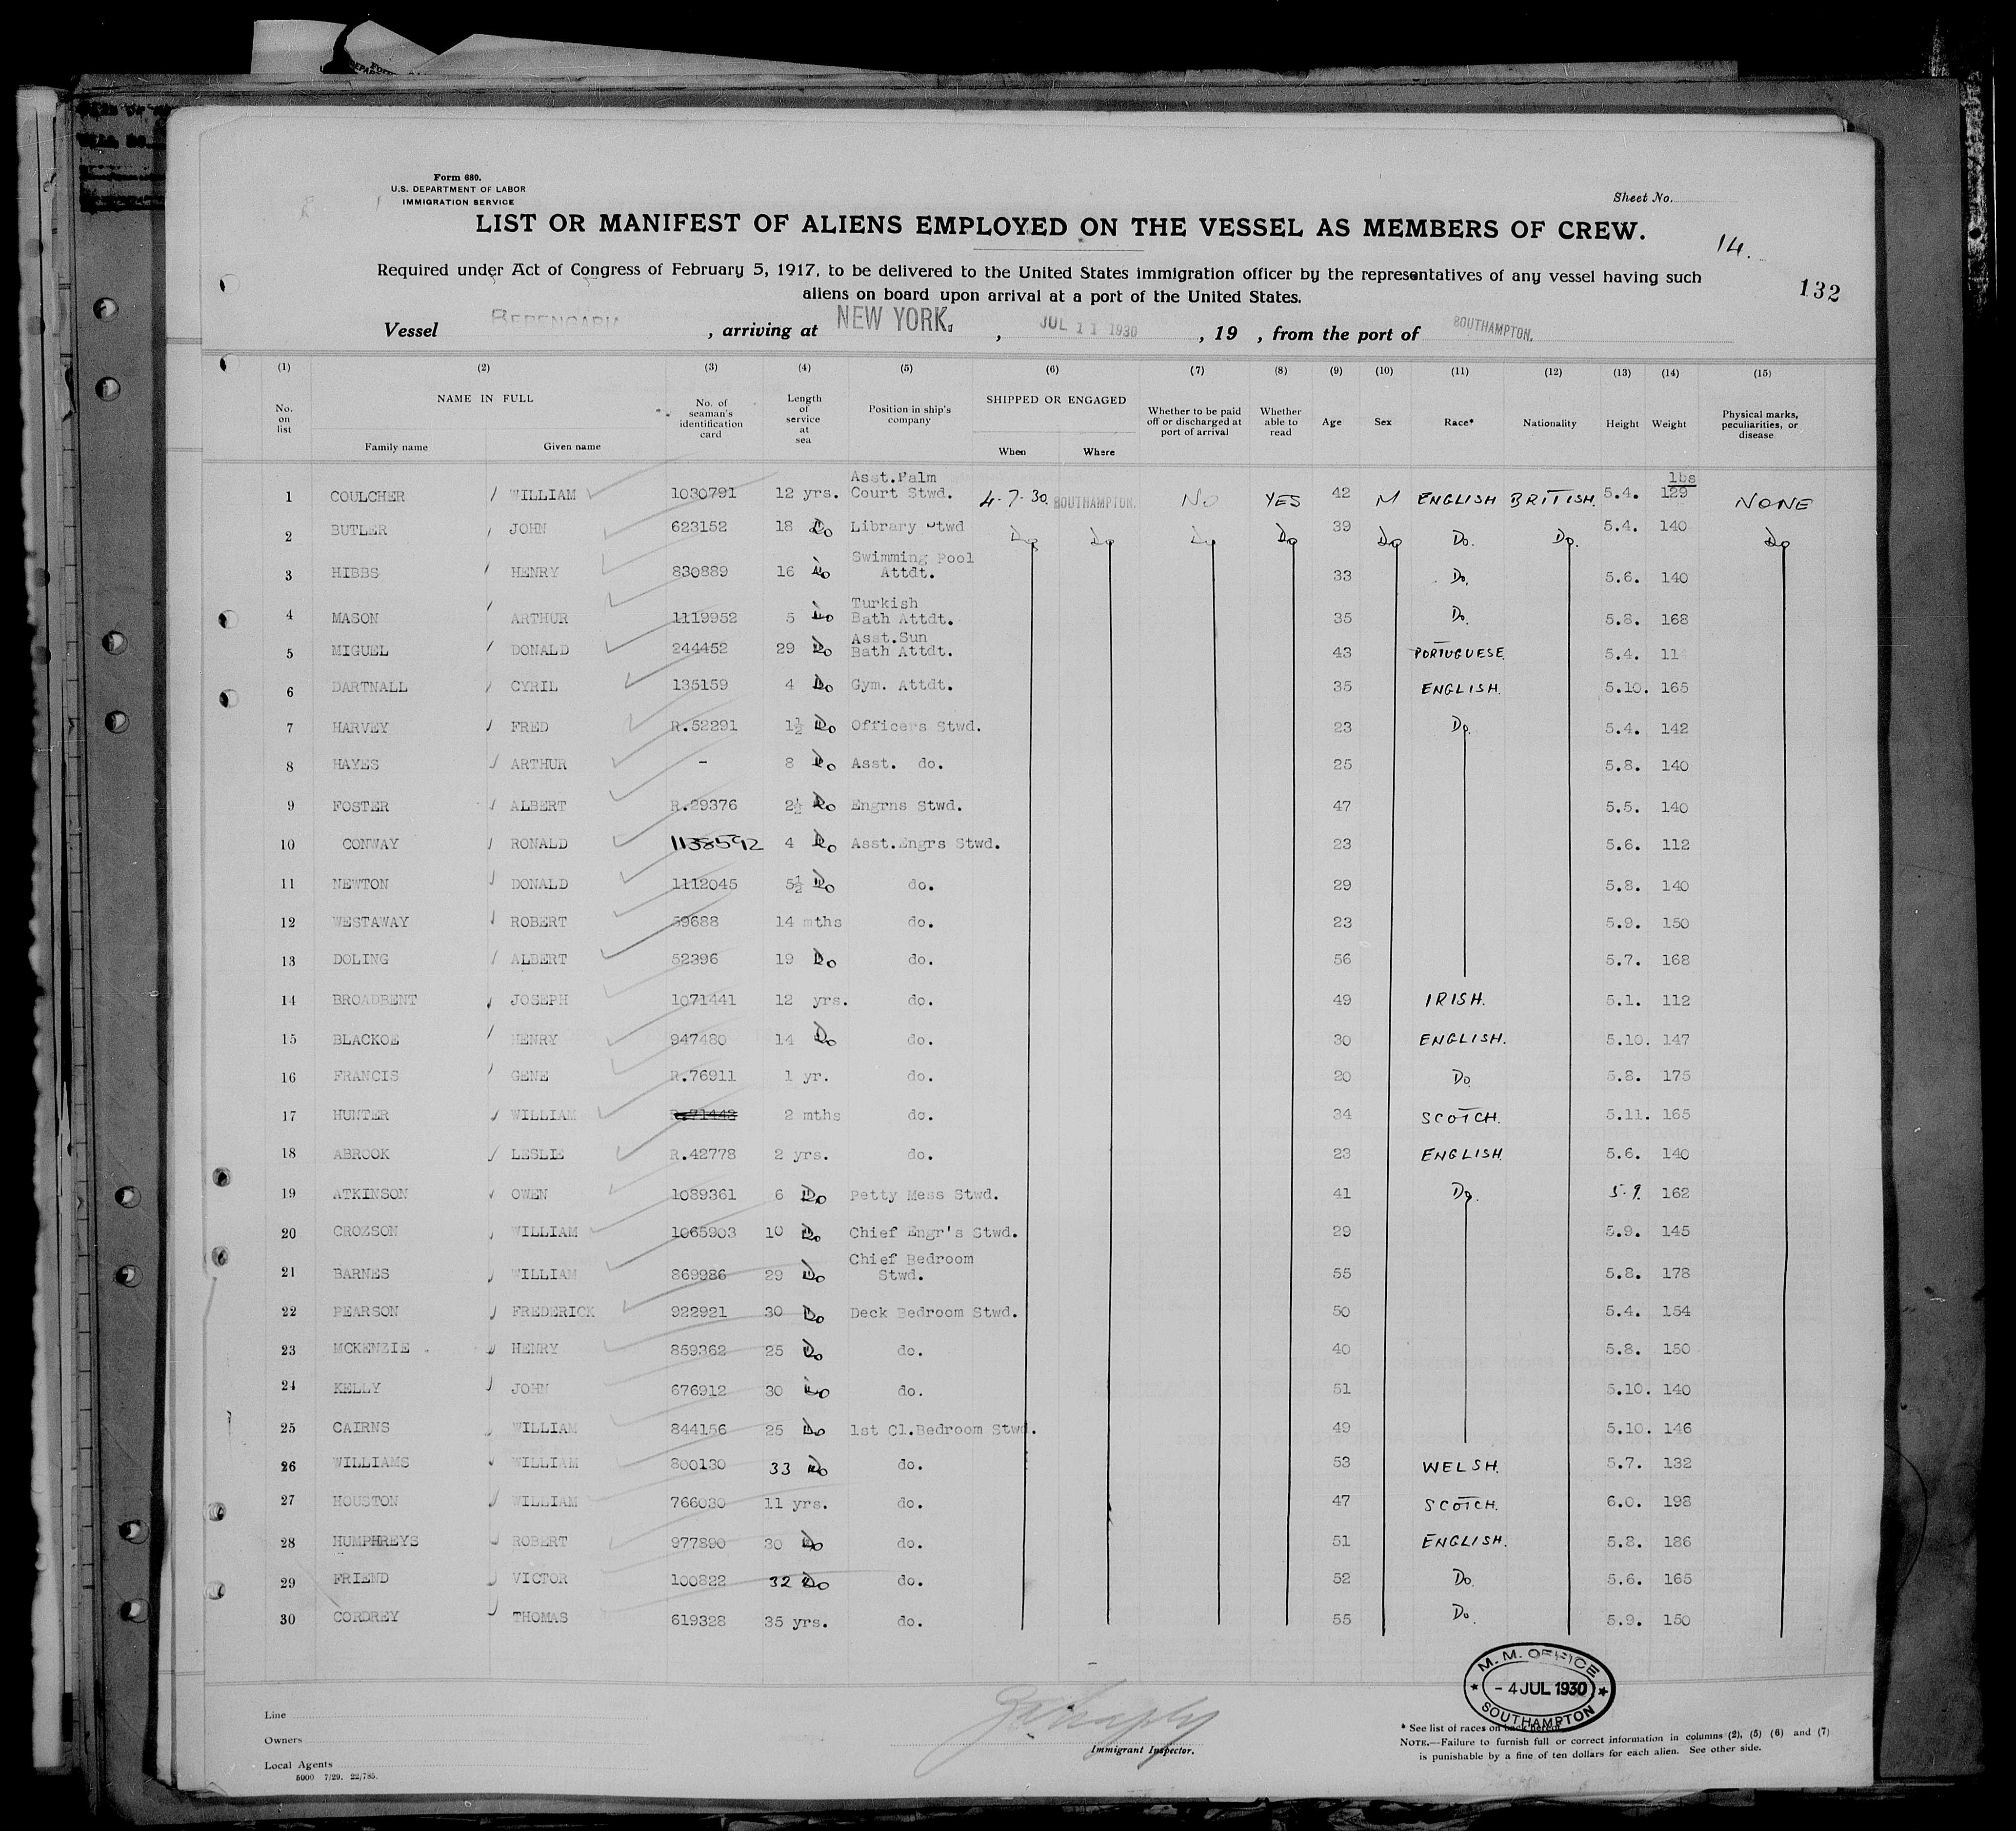 Form 680.
U.S. DEPARTMENT OF LABOR
IMMIGRATION SERVICE
Sheet No.
LIST OR MANIFEST OF ALIENS EMPLOYED ON THE VESSEL AS MEMBERS OF CREW.
14.
Required under Act of Congress of February 5, 1917, to be delivered to the United States immigration officer by the representatives of any vessel having such
aliens on board upon arrival at a port of the United States.
132
Vessel BERENGARIA , arriving at NEW YORK. , JUL 11 1930 , 19 , from the port of SOUTHAMPTON.
(1) (2) (3) (4) (5) (6) (7) (8) (9) (10) (11) (12) (13) (14) (15)
No. on list NAME IN FULL Family name Given name No. of seaman's identification card Length of service at sea Position in ship's company SHIPPED OR ENGAGED When Where Whether to be paid off or discharged at port of arrival Whether able to read Age Sex Race* Nationality Height Weight Physical marks, peculiarities, or disease
lbs
1 COULCHER WILLIAM 1030791 12 yrs. Asst.Palm Court Stwd. 4-7-30. SOUTHAMPTON. NO YES 42 M ENGLISH BRITISH. 5.4. 129 NONE
2 BUTLER JOHN 623152 18 Do Library Stwd Do Do Do Do 39 Do Do. Do. 5.4. 140 Do
3 HIBBS HENRY 830889 16 Do Swimming Pool Attdt. 33 Do. 5.6. 140
4 MASON ARTHUR 1119952 5 Do Turkish Bath Attdt. 35 Do. 5.8. 168
5 MIGUEL DONALD 244452 29 Do Asst.Sun Bath Attdt. 43 PORTUGUESE. 5.4. 11
6 DARTNALL CYRIL 135159 4 Do Gym. Attdt. 35 ENGLISH. 5.10. 165
7 HARVEY FRED R.52291 1½ Do Officers Stwd. 23 Do. 5.4. 142
8 HAYES ARTHUR - 8 Do Asst. do. 25 5.8. 140
9 FOSTER ALBERT R.29376 2½ Do Engrns Stwd. 47 5.5. 140
10 CONWAY RONALD 1138592 4 Do Asst.Engrs Stwd. 23 5.6. 112
11 NEWTON DONALD 1112045 5½ Do do. 29 5.8. 140
12 WESTAWAY ROBERT 59688 14 mths do. 23 5.9. 150
13 DOLING ALBERT 52396 19 Do do. 56 5.7. 168
14 BROADBENT JOSEPH 1071441 12 yrs. do. 49 IRISH. 5.1. 112
15 BLACKOE HENRY 947480 14 Do do. 30 ENGLISH. 5.10. 147
16 FRANCIS GENE R.76911 1 yr. do. 20 Do 5.8. 175
17 HUNTER WILLIAM 2 mths do. 34 SCOTCH. 5.11. 165
18 ABROOK LESLIE R.42778 2 yrs. do. 23 ENGLISH. 5.6. 140
19 ATKINSON OWEN 1089361 6 Do Petty Mess Stwd. 41 Do. 5.9. 162
20 CROZSON WILLIAM 1065903 10 Do Chief Engr's Stwd. 29 5.9. 145
21 BARNES WILLIAM 869986 29 Do Chief Bedroom Stwd. 55 5.8. 178
22 PEARSON FREDERICK 922921 30 Do Deck Bedroom Stwd. 50 5.4. 154
23 MCKENZIE HENRY 859362 25 Do do. 40 5.8. 150
24 KELLY JOHN 676912 30 Do do. 51 5.10. 140
25 CAIRNS WILLIAM 844156 25 Do 1st Cl.Bedroom Stwd. 49 5.10. 146
26 WILLIAMS WILLIAM 800130 33 Do do. 53 WELSH. 5.7. 132
27 HOUSTON WILLIAM 766030 11 yrs. do. 47 SCOTCH. 6.0. 198
28 HUMPHREYS ROBERT 977890 30 Do do. 51 ENGLISH. 5.8. 186
29 FRIEND VICTOR 100822 32 Do do. 52 Do. 5.6. 165
30 CORDREY THOMAS 619328 35 yrs. do. 55 Do. 5.9. 150
M. M. OFFICE
- 4 JUL 1930
SOUTHAMPTON
Line
Owners
Local Agents
5000 7/29. 22/785.
Immigrant Inspector.
* See list of races on back hereof.
NOTE.—Failure to furnish full or correct information in columns (2), (5) (6) and (7)
is punishable by a fine of ten dollars for each alien. See other side.